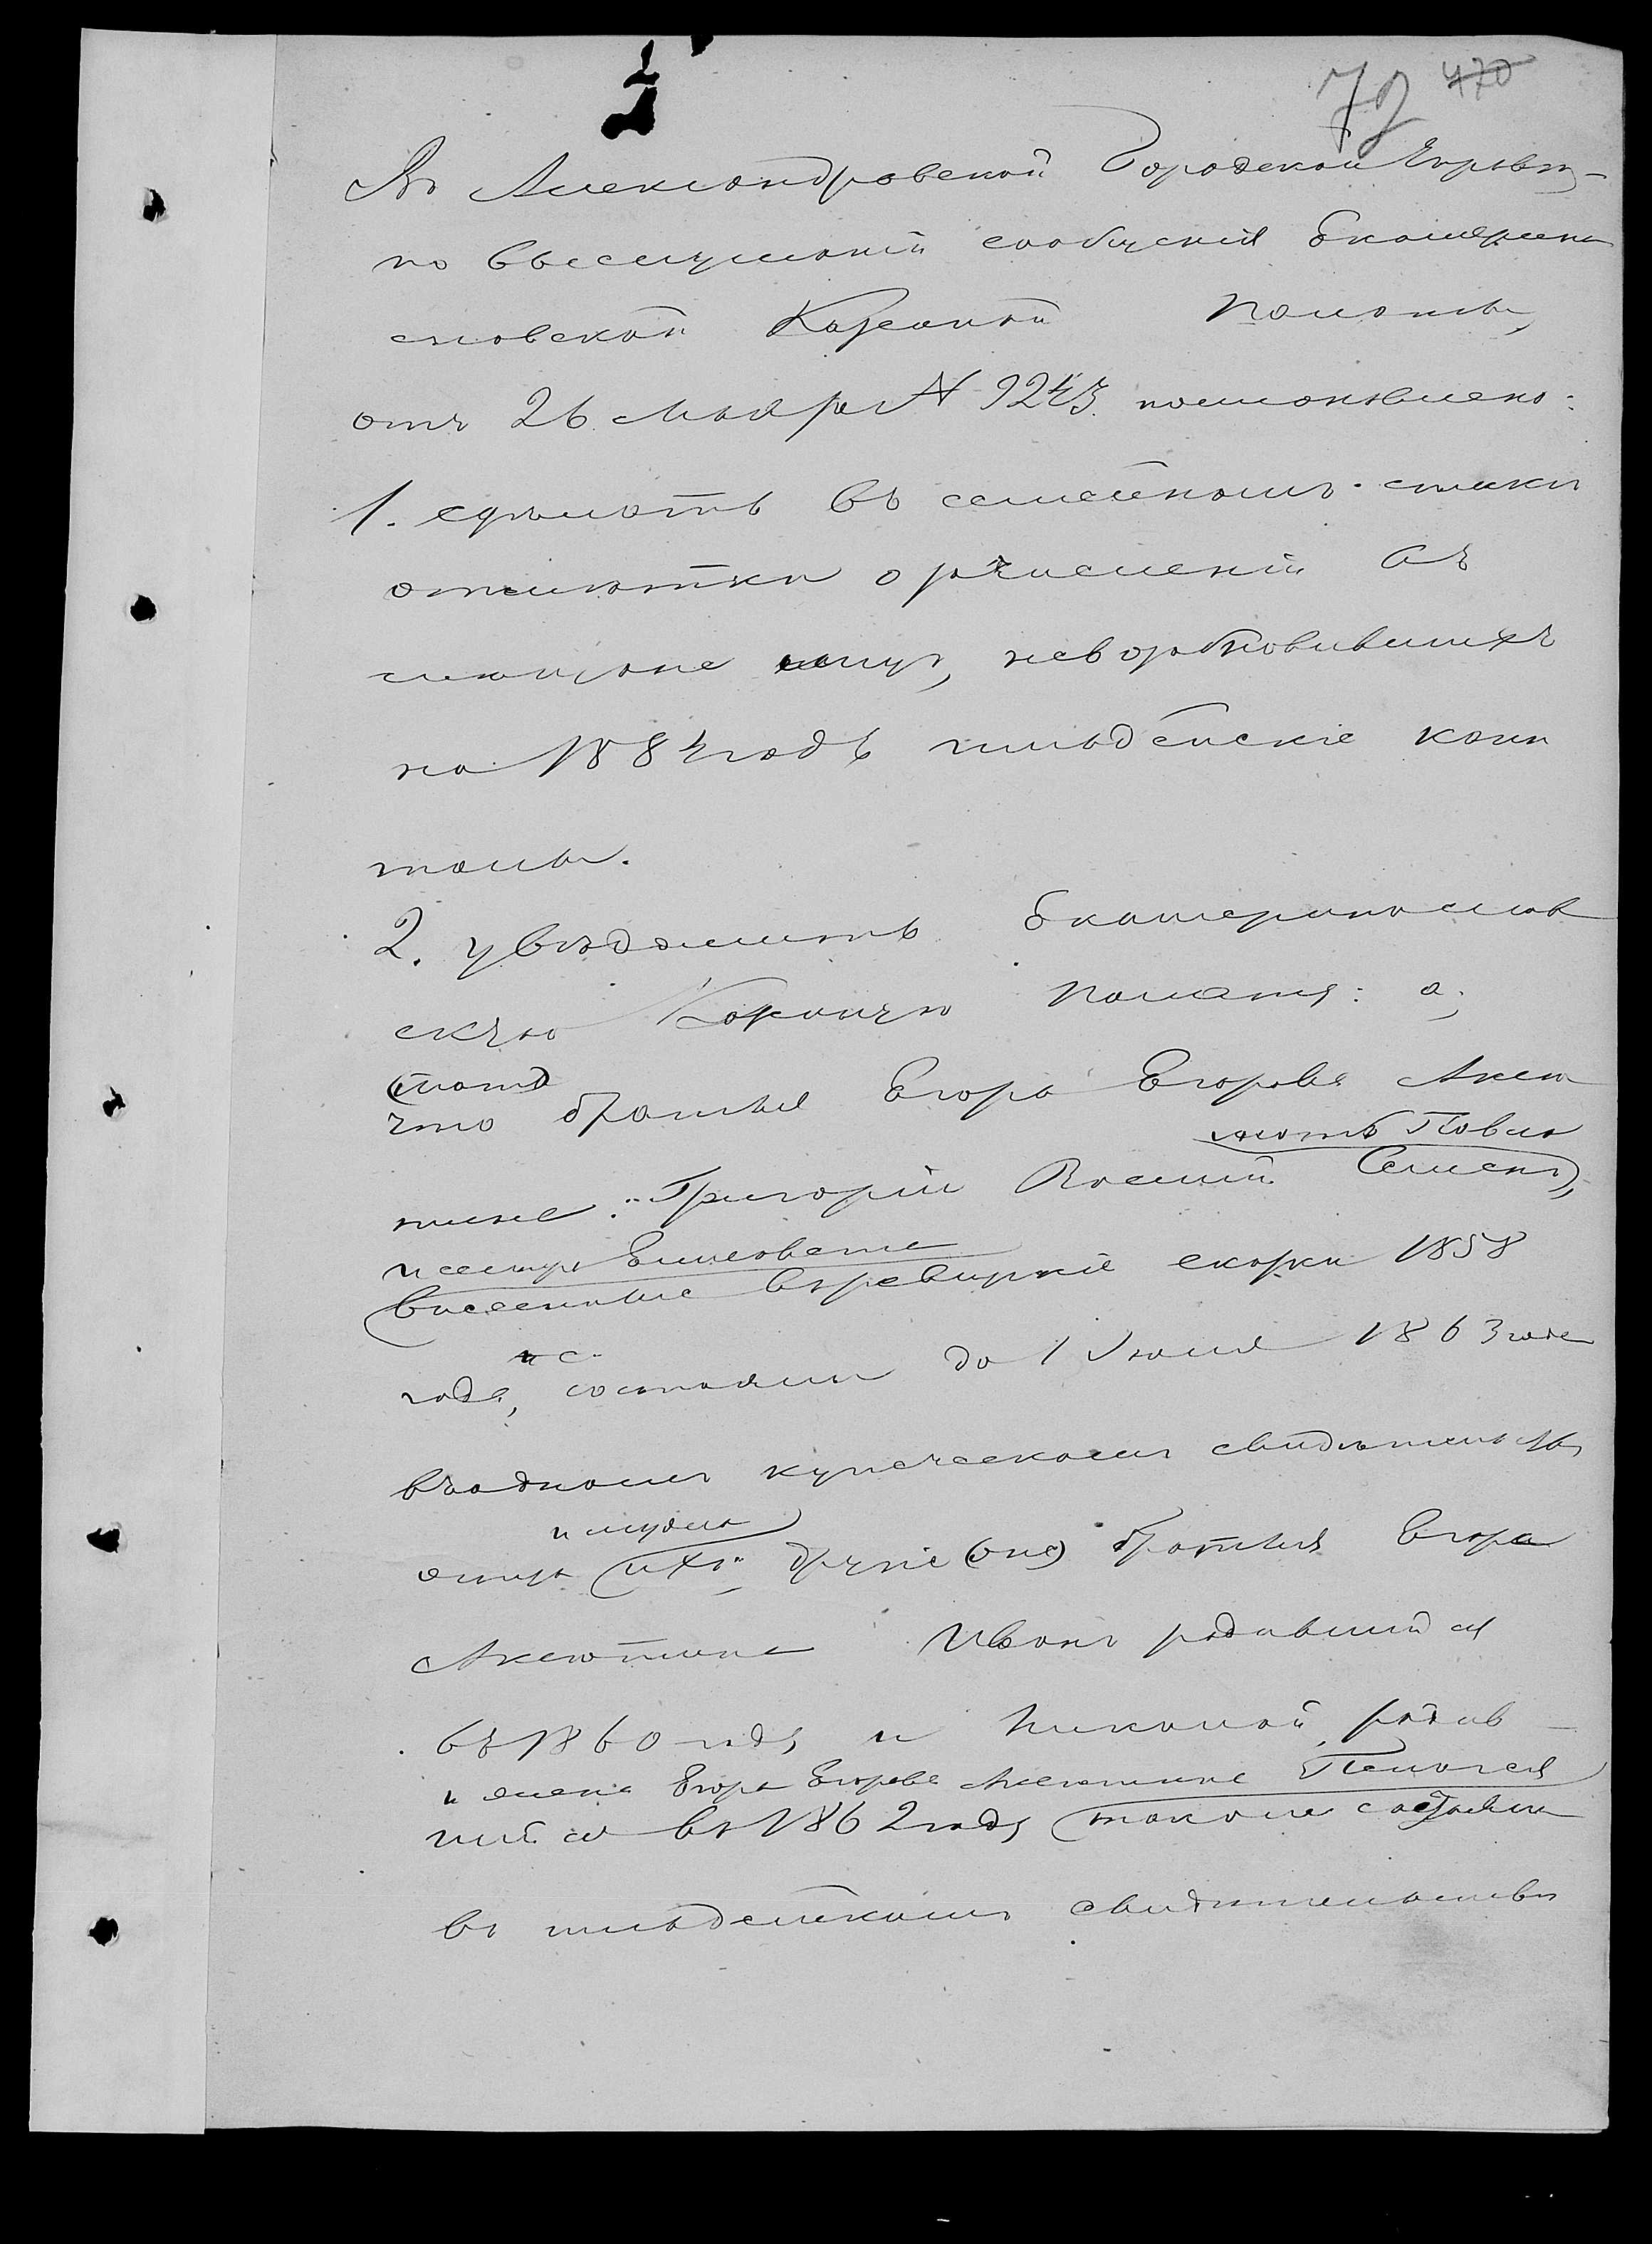 72 470
Въ Александровской Городской Управѣ
по выслушаніи сообщенія Екатерино
славской Казенной Палаты,
отъ 26 Мая № 9243 постановлено:
1. сдѣлать въ семейномъ списки
отмѣтки о зачисленіи въ
мещане лицъ, невозобновившихъ
на 1884 годъ гильдейскіе капи
талы.
2. увѣдомить Екатеринослав
скую Казенную Палату: а,
что братья Егора Егорова Аксю
мать Павла
тина: Григорій Василій Семенъ,
и сестра Елисавета
внесенные въ ревизкіе сказки 1858
года, состояли до 1 Июля 1863 года
въ одномъ купеческомъ свидѣтельствѣ
отца ихъ, другіе братья Егора
Аксютина Иванъ родившійся
въ 1860 году и Николай родив-
и жена Егора Егорова Аксютина Пелагея
шійся въ 1862 году также состояли
въ гильдейскомъ свидѣтельствѣ